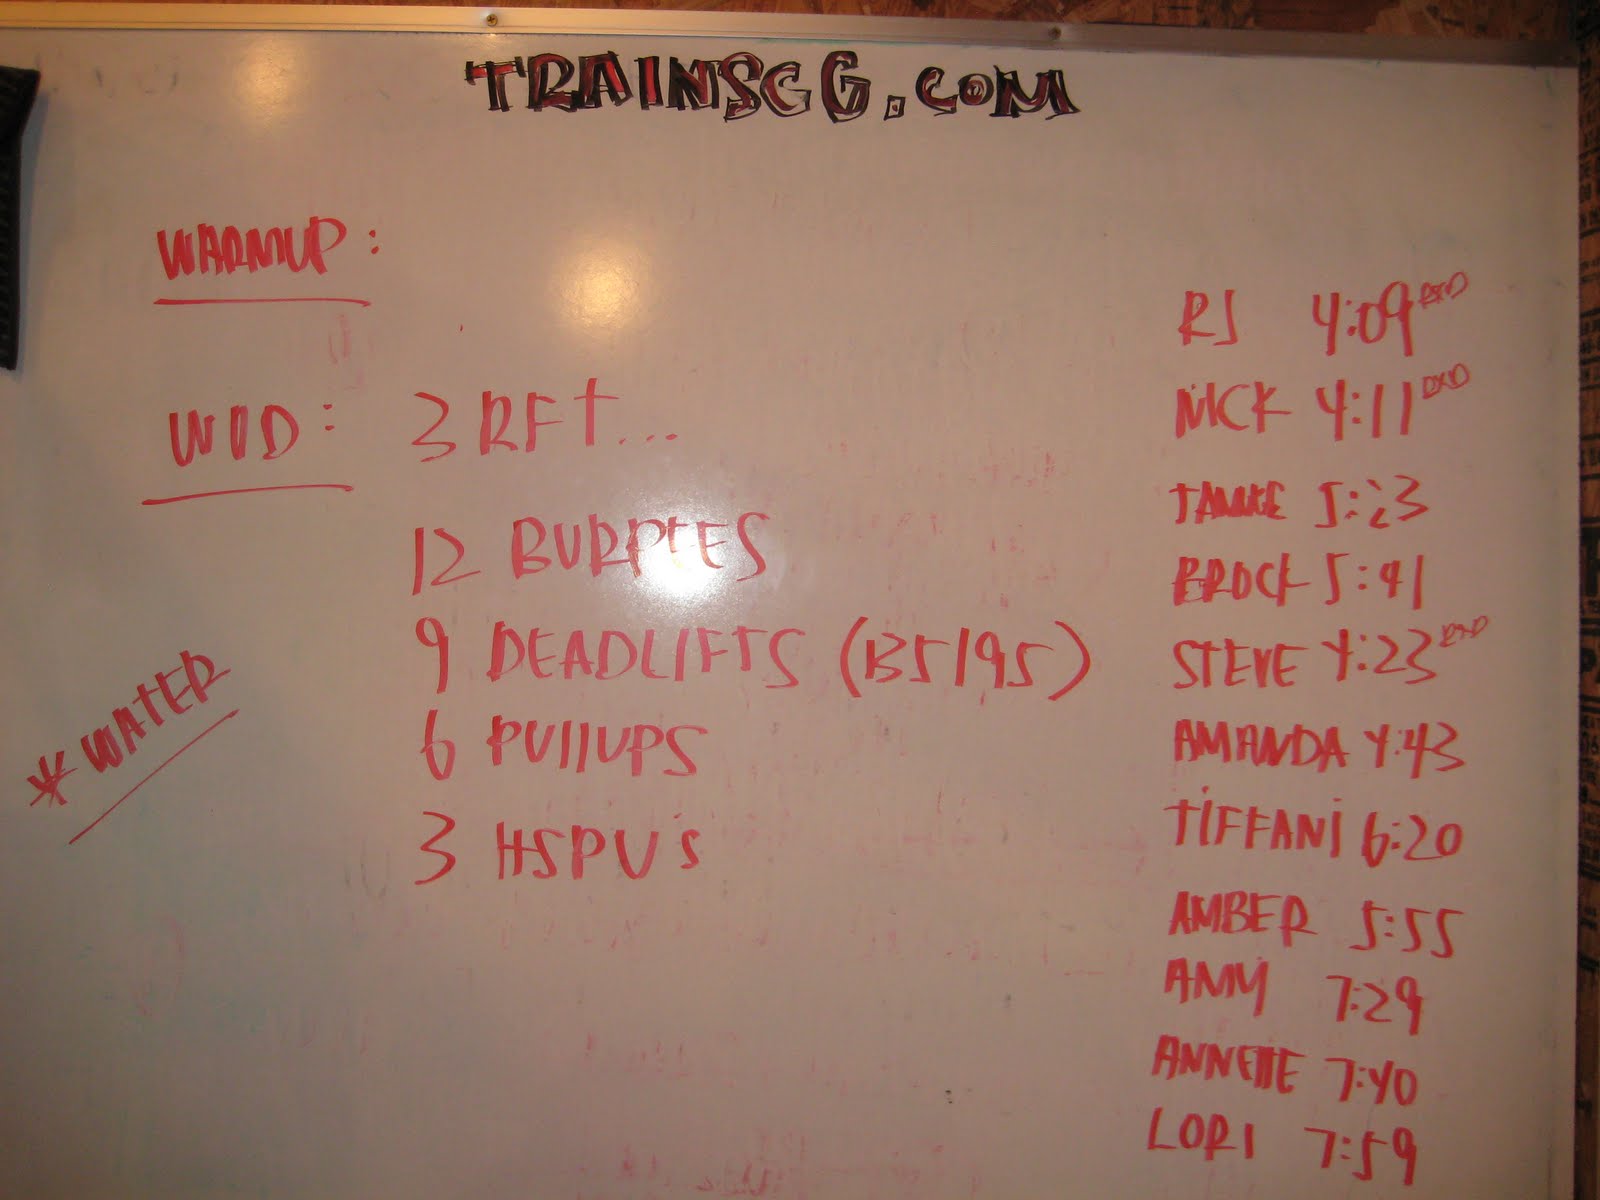 TRAINSCG.COM
WARMUP:
WOD: 3 RFT...
12 BURPEES
9 DEADLIFTS (135/95)
6 PULLUPS
3 HSPU's
* WATER
RJ 4:09 RXD
NICK 4:11 RXD
5:23
BROCK 5:41
STEVE 4:23 RXD
AMANDA 4:43
TIFFANI 6:20
AMBER 5:55
AMY 7:29
ANNETTE 7:40
LORI 7:59